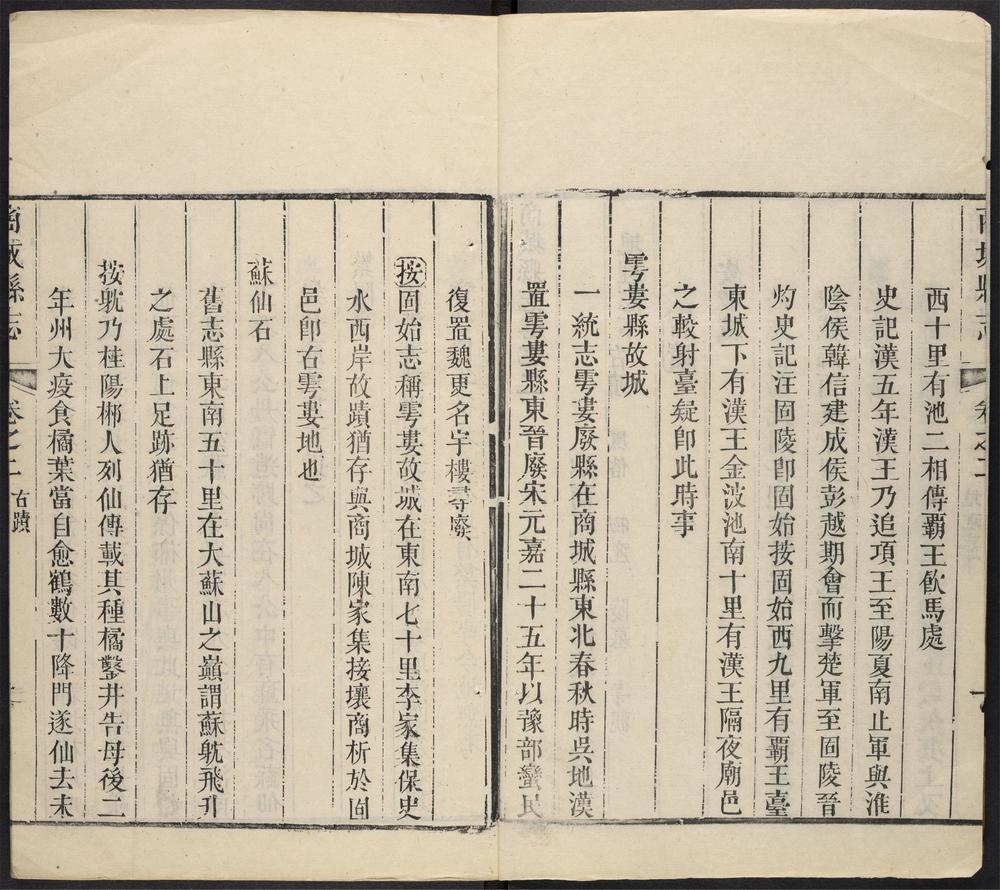 商城縣志
卷之二
西十里有池二相傳覇王飮馬處
史記漢五年漢王乃追項王至陽夏南止軍與淮
陰侯韓信建成侯彭越期會而擊楚軍至固陵晉
灼史記汪固陵卽固始按固始西九里有覇王臺
東城下有漢王金波池南十里有漢王隔夜廟邑
之較射臺疑卽此時事
雩婁縣故城
一統志雩婁廢縣在商城縣東北春秋時吳地漢
置雩婁縣東晉廢宋元嘉二十五年以豫部蠻民
復置魏更名宇樓尋廢
按固始志稱雩婁故城在東南七十里李家集保史
水西岸故蹟猶存與商城陳家集接壤商析於固
邑卽古雩婁地也
蘇仙石
舊志縣東南五十里在大蘇山之巔謂蘇躭飛升
之處石上足跡猶存
按躭乃桂陽郴人列仙傳載其種橘鑿井告母後二
年州大疫食橘葉當自愈鶴數十降門遂仙去未
商城縣志
卷之二
古蹟